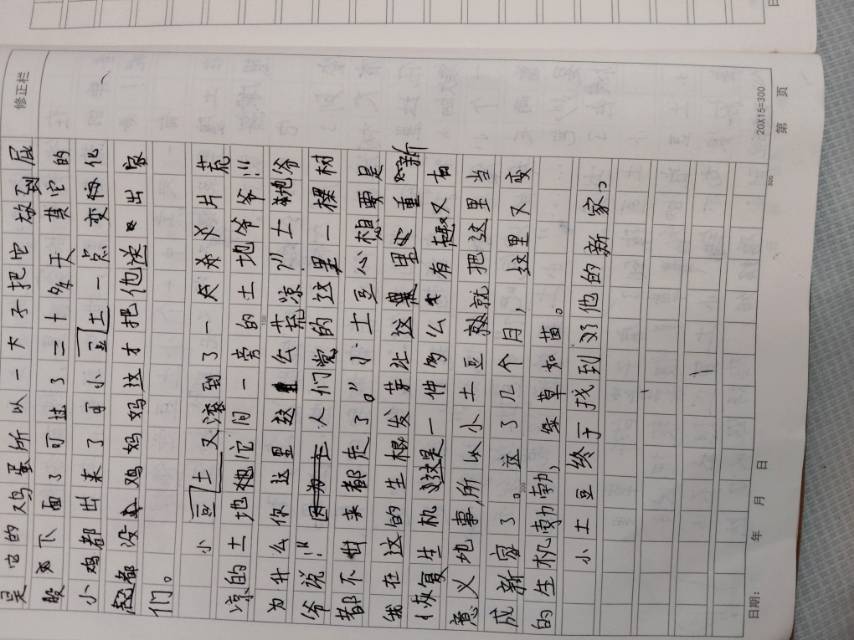 修正栏
是它的鸡蛋所以一大子把它放到屁
股下面了可过了二十多天其它的
小鸡都出来了可小豆土一点变化
都没鸡妈妈这才把他送出家
们。
小豆土又滚到了一大片荒
凉的土地它问一旁的土地爷爷:"
为什么你这里这么荒凉?"土地爷
爷说:"人们觉的这里一棵树
都不出来都走了。"小土豆心想要是
我在这的生根发芽让这里重新
恢复生机这是一件多么有趣又有
意义地事,所以小土豆就把这里当
成新家了。过了几个月,这里又变
的生机勃勃,绿草如茵。
小土豆终于找到了他的新家。
日期: 年 月 日
20X15=300
第 页